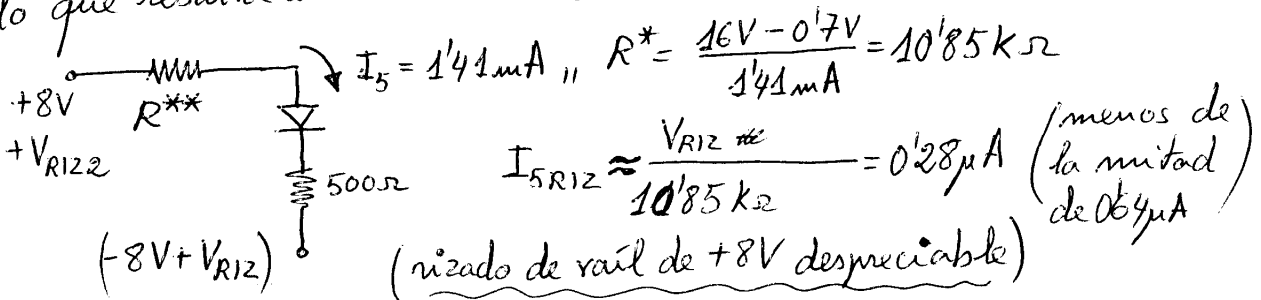 lo que
I₅ = 1'41mA ,, R* = (16V - 0'7V) / 1'41mA = 10'85KΩ
+8V
+V_RIZ2
R**
500Ω
I₅RIZ ≈ V_RIZ / 10'85KΩ = 0'28μA (menos de la mitad de 0'64μA)
(-8V + V_RIZ)
(rizado de raíl de +8V despreciable)